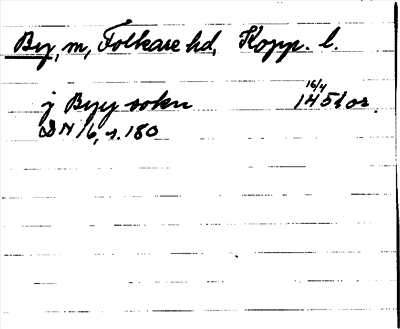 By, m, Folkare hd, Kopp. l.
j Byy sokn 16/4 1451 or.
DN 16, s. 180